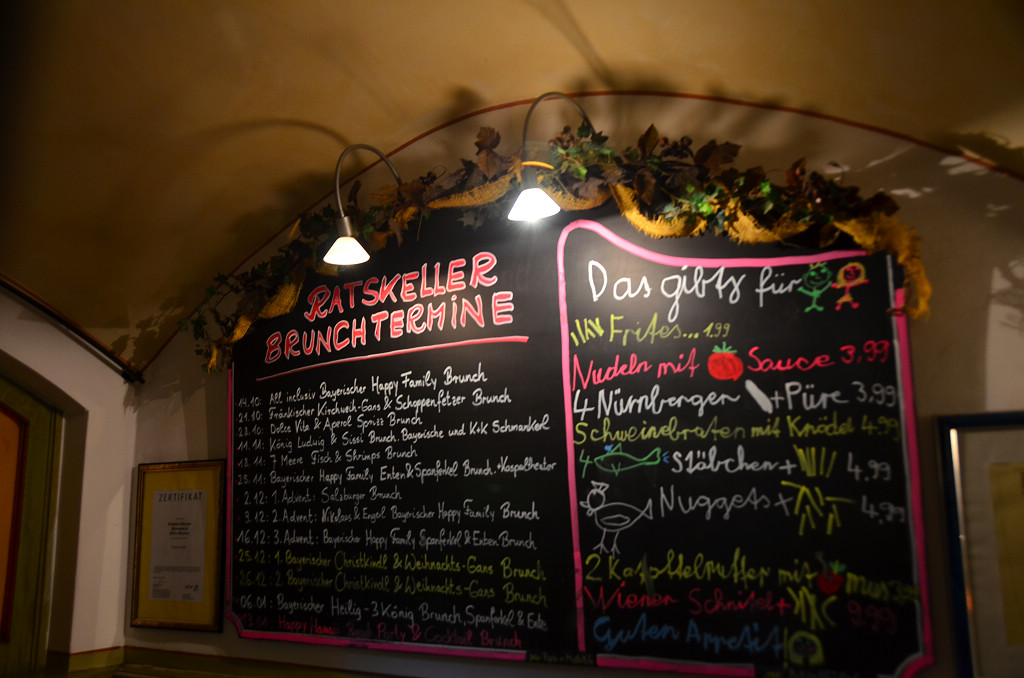 RATSKELLER
BRUNCHTERMINE
14.10: All inclusiv Bayerischer Happy Family Brunch
21.10: Fränkischer Kirchweih-Gans & Schoppenfetzer Brunch
28.10: Dolce Vita & Aperol Sprizz Brunch
11.11: König Ludwig & Sissi Brunch, Bayerische und K+K Schmankerl
18.11: 7 Meere Fisch & Shrimps Brunch
25.11: Bayerischer Happy Family Enten & Spanferkel Brunch +Kaspaltheater
2.12: 1. Advent: Salzburger Brunch
9.12: 2. Advent: Nikolaus & Engel Bayerischer Happy Family Brunch
16.12: 3. Advent: Bayerischer Happy Family Spanferkel & Enten Brunch
25.12: 1. Bayerischer Christkindl & Weihnachts-Gans Brunch
26.12: 2. Bayerischer Christkindl & Weihnachts-Gans Brunch
06.01: Bayerischer Heilig-3 König Brunch, Spanferkel & Ente
Happy Party & Cocktail Brunch
Das gibts für
Frites... 1.99
Nudeln mit Sauce 3,99
4 Nürnberger + Püre 3,99
Schweinebraten mit Knödel 4.99
4 Stäbchen + 4,99
Nuggets + 4,99
2 mit mus
Wiener Schnitzel + 9,99
Guten Appetit
ZERTIFIKAT